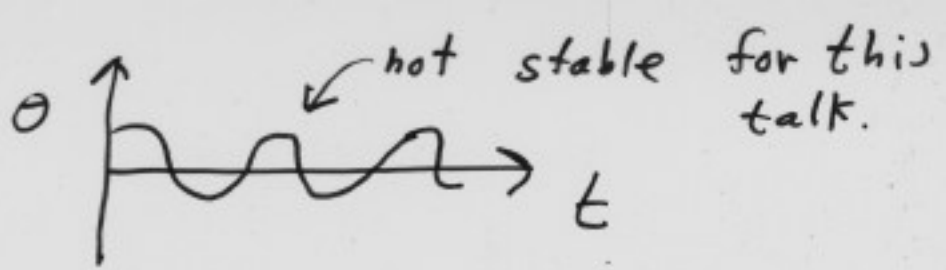 not stable for this
talk.
θ
t